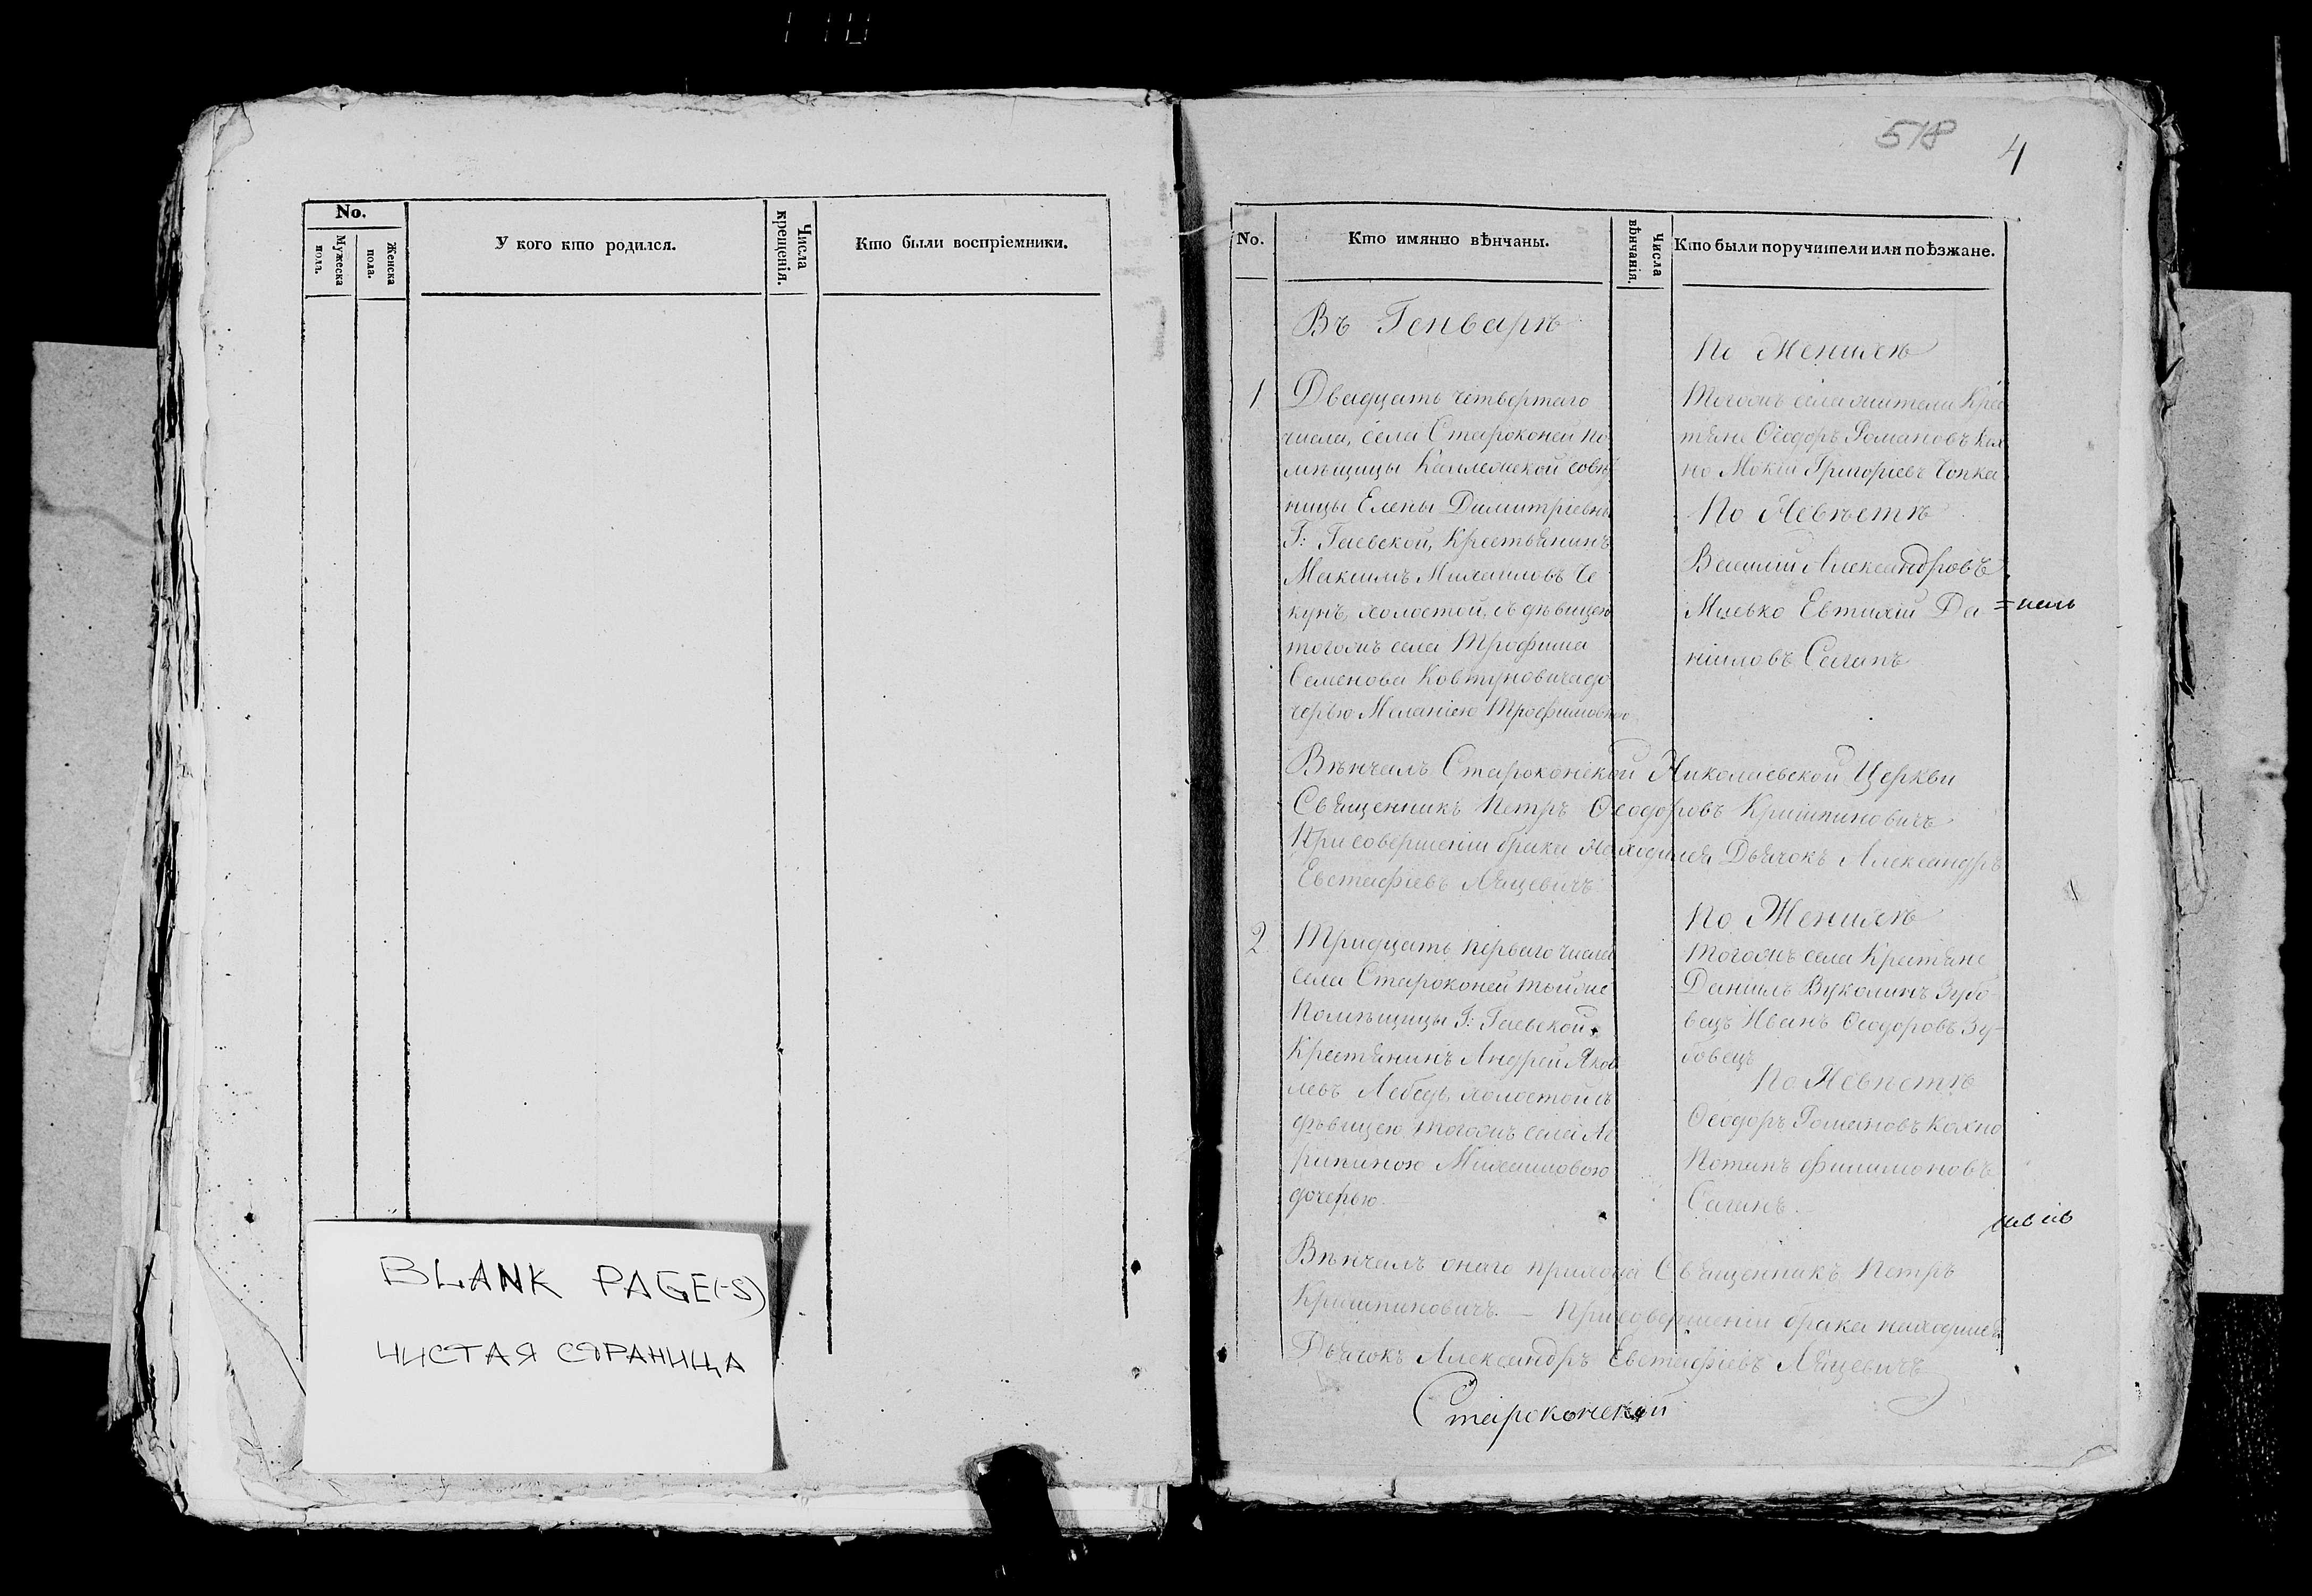 No.
Мужеска пола.
Женска пола.
У кого кто родился.
Числа крещенія.
Кто были воспріемники.
BLANK PAGE(-S)
ЧИСТАЯ СТРАНИЦА
518
4
No.
Кто имянно вѣнчаны.
Числа вѣнчанія.
Кто были поручители или поѣзжане.
Въ Генварѣ
1
Двадцать четвертаго
числа, села Староконей по
мѣщицы Коллежской совѣ
ницы Елены Димитріевны
Г: Гаевской, Крестьянинъ
Максимъ Михаиловъ Че
кунъ, холостой, съ дѣвицею
тогожъ села Трофима
Семенова Ковтуновича до
черью Меланіею Трофимовною
По Женихѣ
Тогожъ села жители Крес
тяне Ѳеодоръ Романовъ Кох
но Мокій Григоріевъ Чопка
По Невѣстѣ
Василій Александровъ
Мисько Евтихій Да
ніиловъ Саганъ
Вѣнчалъ Староконской Николаевской Церкви
Священникъ Петръ Ѳеодоровъ Криштиновичъ
При совершеніи брака находился Дьячокъ Александръ
Евстафіевъ Лящевичъ.
2
Тридцать перваго числа
села Староконей тойже
Помѣщицы Г: Гаевской
Крестянинъ Андрей Яков
левъ Лебедь, холостой съ
дѣвицею тогожъ села Аг
рипиною Михаиловою
дочерью
По Женихѣ
Тогожъ села Крестяне
Даниилъ Вуколинъ Зубо
вецъ Иванъ Ѳеодоровъ Зу-
бовецъ
По Невѣстѣ
Ѳеодоръ Романовъ Кохно
Потапъ Филимоновъ
Саганъ.
Вѣнчалъ онаго прихода Священникъ Петръ
Криштиновичъ. — При совершеніи брака находился
Дьячокъ Александръ Евстафіевъ Лящевичъ
Староконской